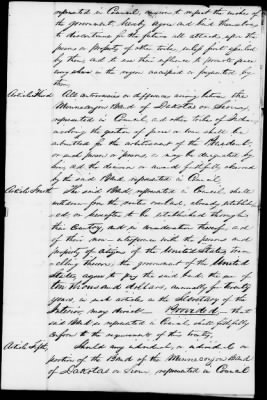 represented in Council, anxious to respect the wishes of
the government, hereby agree and bind themselves
to discontinue for the future all attacks upon the
persons or property of other tribes, unless first assailed
by them, and to use their influence to promote peace
everywhere in the region occupied or frequented by
them.
Article Third. All controversies or differences arising between the
Minneconjou Band of Dakotas or Sioux,
represented in Council, and other tribes of Indians
involving the question of peace or war shall be
submitted for the arbitrament of the President,
or such person or persons as may be designated by
him, and the decision or award faithfully observed
by the said Band represented in Council.
Article Fourth. The said Band, represented in Council, shall
withdraw from the routes overland, already establish-
ed or hereafter to be established through
their Country, and in consideration thereof, and
of their non-interference with the persons and
property of citizens of the United States, trav-
elling thereon the government of the United
States, agree to pay the said band the sum of
ten thousand dollars, annually for twenty
years, in such articles as the Secretary of the
Interior may direct. Provided, that
said Band so represented in Council, shall faithfully
conform to the requirements of this treaty.
Article Fifth. Should any individual, or individuals or
portion of the Band of the Minneconjou Band
of Dakotas or Sioux represented in Council